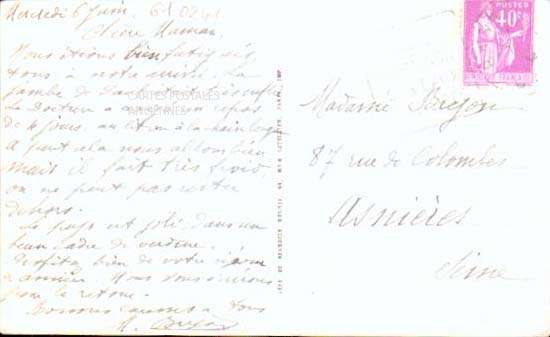 Mercredi 6 Juin. 610241
Chère Maman,
Nous étions bien fatigués
tous à notre arrivée. La
jambe de
Le Docteur a un repos
de 4 jours, au lit ou à la chaise longue
A part cela nous allons bien
mais il fait très froid
on ne peut pas rester
dehors.
Le pays est joli, dans un
beau cadre de verdure.
Profitez bien de votre séjour
à Nous vous écrirons
pour le retour.
Bonnes à tous
M. Brejon
CARTES POSTALES
ANCIENNES
POSTES
40c
RÉPUBLIQUE FRANÇAISE
Madame Brejon
87 rue de Colombes
Asnières
Seine